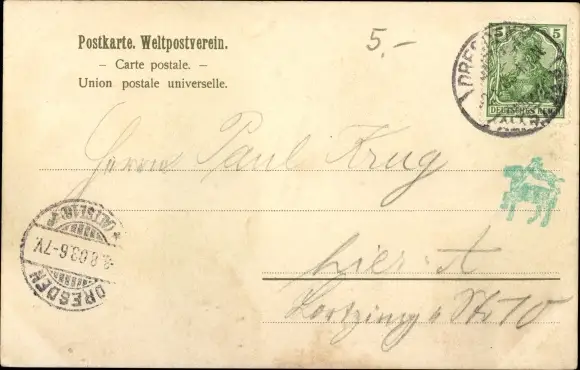 Postkarte. Weltpostverein.
– Carte postale. –
Union postale universelle.
5.-
5 5
DEUTSCHES REICH
DRESDEN
Herrn Paul Krug
hier: A
Lortzing Str 10
DRESDEN
8.03.6-7V.